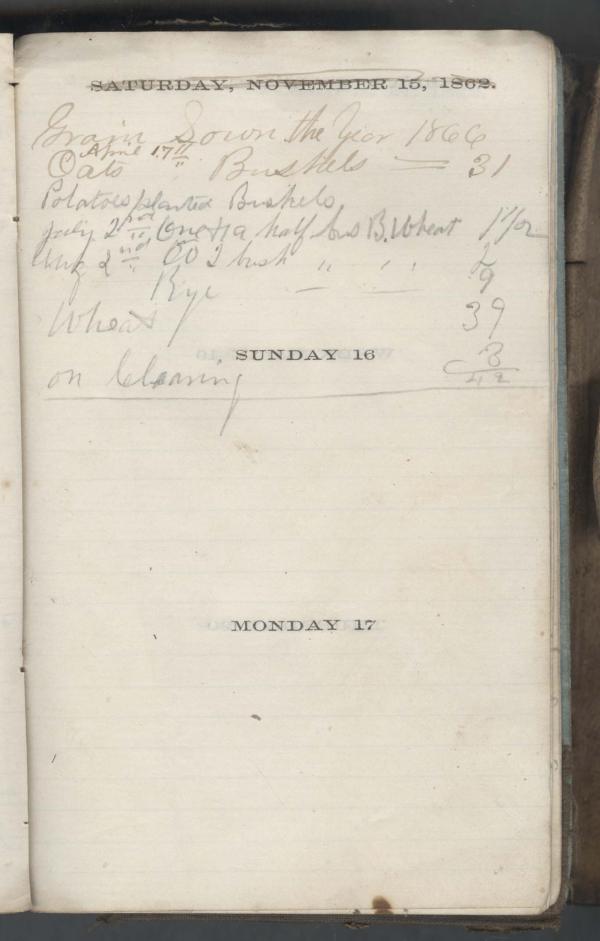 SATURDAY, NOVEMBER 15, 1862.
Grain Sown the Year 1866
April 17th
Oats " Bushels — 31
Potatoes planted Bushels
July 2nd One & a half bus B. Wheat 1 1/2
Aug 2nd 2 bush " " 2
Rye — — 9
Wheat 39
SUNDAY 16
on Clearing 3
42
MONDAY 17